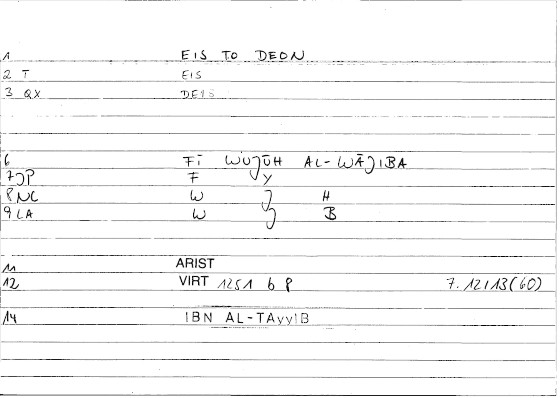 1 EIS TO DEON
2 T EIS
3 QX
6 Fī WUJŪH AL-WĀJIBA
7 JP F Y
8 NC W J H
9 LA W J B
11 ARIST
12 VIRT 1251 b 8 7.12/13(60)
14 IBN AL-TAyyIB